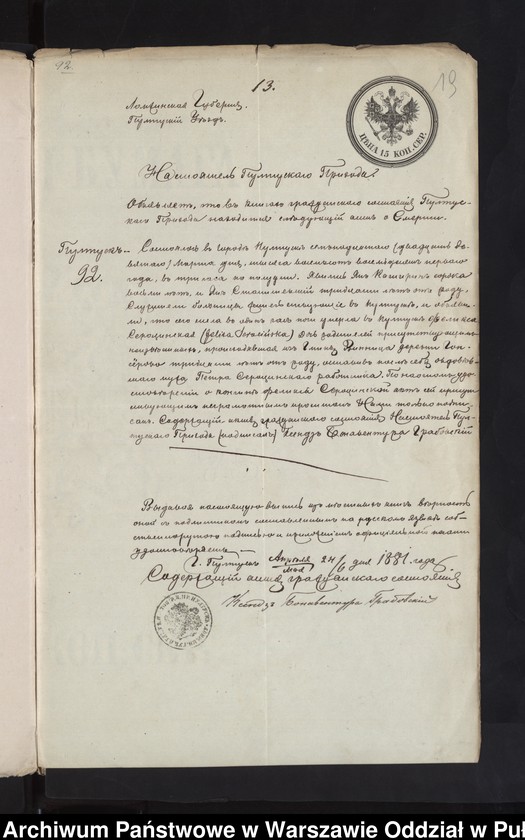 92
13.
19
Ломжинская Губерния.
Пултуский Уѣздъ.
ЦѢНА 15 КОП. СЕР.
Настоятель Пултускаго Прихода
Объявляетъ, что въ книгахъ гражданскаго состоянія Пултус-
каго Прихода находится слѣдующій актъ о Смерти.
Пултускъ.
92.
Состоялось въ городѣ Пултускѣ (двадцать де-
вятаго) Марта дня, тысяча восемьсотъ восемьдесятъ перваго
года, въ три часа по полудни. Явились Янъ сорока
восьми лѣтъ и Янъ тридцати лѣтъ отъ роду,
Служители больницы, жительствующіе въ Пултускѣ, и объяви-
ли, что сего числа въ часъ ночи умерла въ Пултускѣ Феликса
Сероцинская
изъ Гмины Винница деревни
тридцати лѣтъ отъ роду, оставивъ послѣ себя овдовѣв-
шаго мужа Петра Сероцинскаго работника. По настоящему удо-
стовѣренію о кончинѣ Феликсы Сероцинской актъ сей присут-
ствующимъ неграмотнымъ прочитанъ Нами только подпи-
санъ. Содержащій акты гражданскаго состоянія Настоятель Пул-
тускаго Прихода (подписалъ) Ксендзъ Бонавентура Грабовскій
Выдавая настоящую выпись изъ метрическихъ книгъ вѣрность
оной съ подлинникомъ составленнымъ на русскомъ языкѣ соб-
ственноручною подписью и приложеніемъ оффиціальной печати
удостовѣряю.
г. Пултускъ Апрѣля/Мая 24/6 дня 1881 года
Содержащій акты гражданскаго состоянія
Ксендзъ Бонавентура Грабовскій
Archiwum Państwowe w Warszawie Oddział w Puł